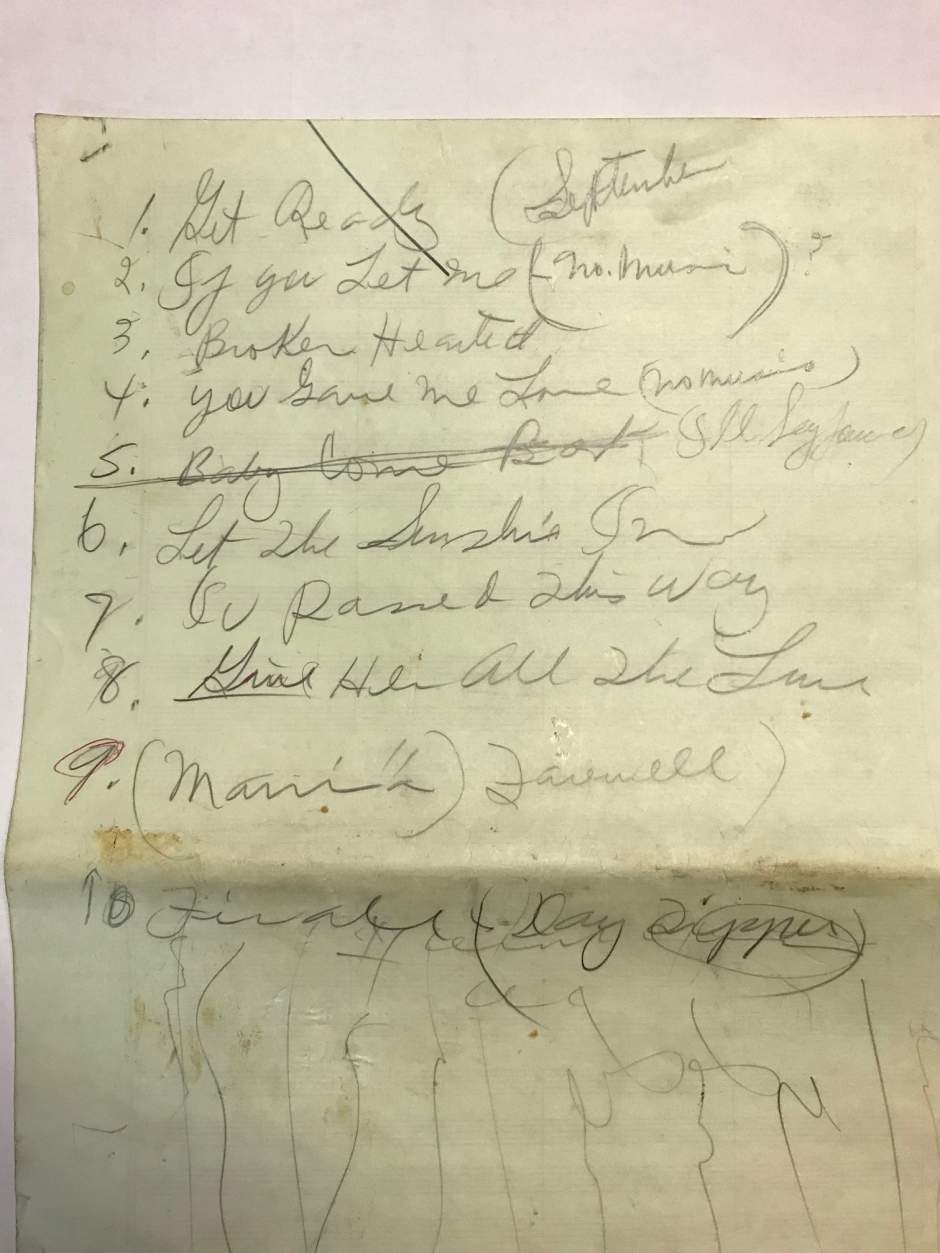 1. Get Ready (September
2. If you Let me (no. music) ?
3. Broken Hearted
4. you Gave Me Love (no music)
5. Baby Come Back (I'll
6. Let The Sunshine In
7. Iv Passed This Way
8. Give Her All The Love
9. (Marvin's) Farewell)
10 Finale (Day Tripper)